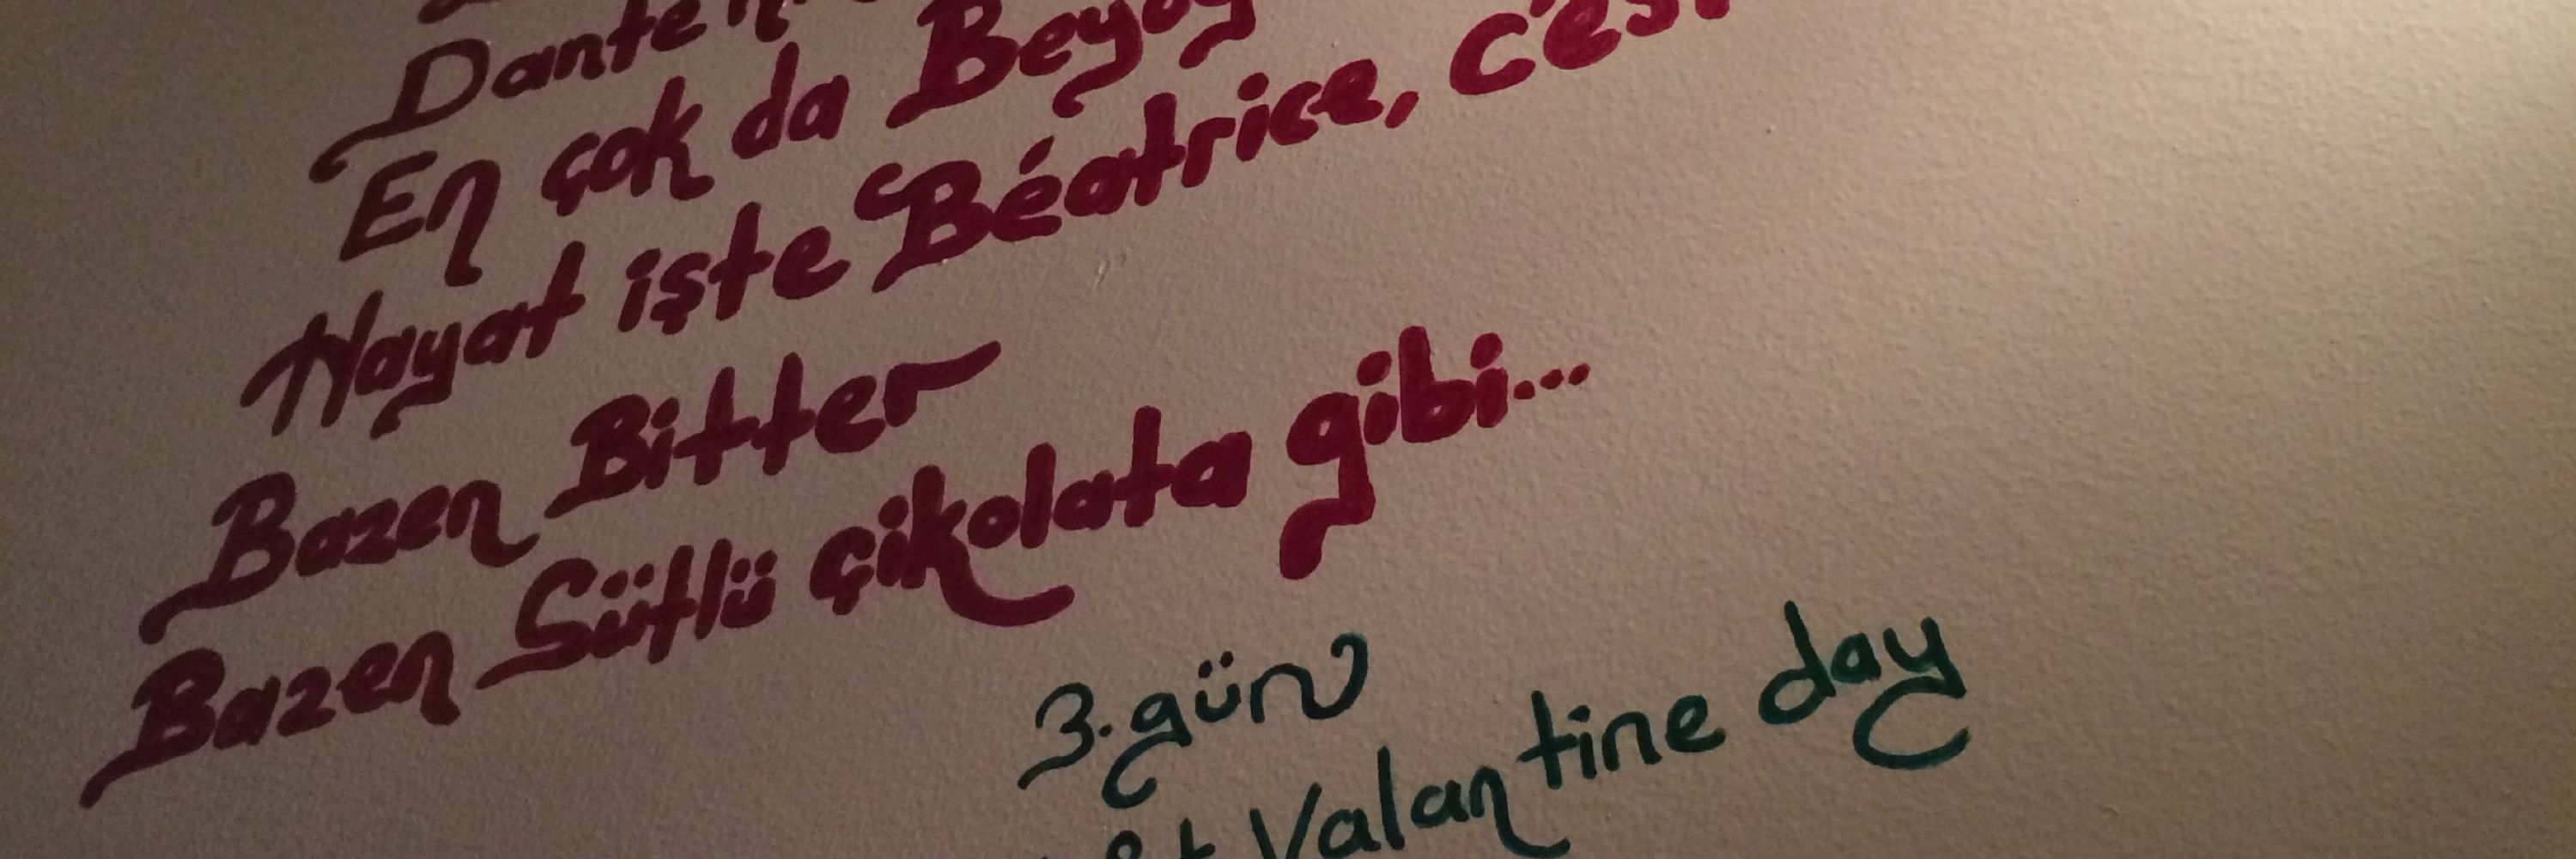 En çok da
Hayat işte Béatrice,
Bazen Bitter
Bazen Sütlü çikolata gibi...
3.gün
Valantine day